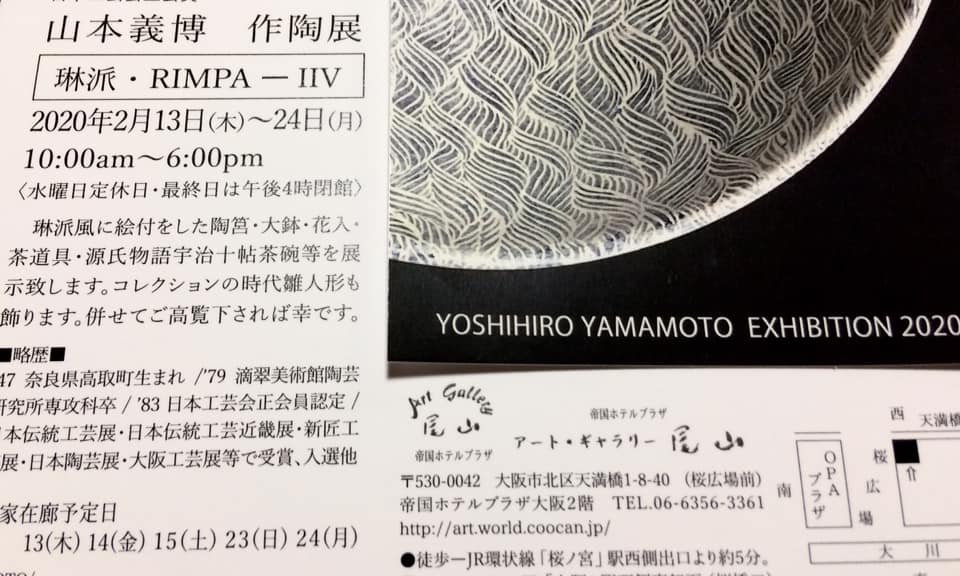 山本義博 作陶展
琳派・RIMPA－IIV
2020年2月13日(木)～24日(月)
10:00am～6:00pm
〈水曜日定休日・最終日は午後4時閉館〉
琳派風に絵付をした陶筥・大鉢・花入・
茶道具・源氏物語宇治十帖茶碗等を展
示致します。コレクションの時代雛人形も
飾ります。併せてご高覧下されば幸です。
■略歴■
47 奈良県高取町生まれ /'79 滴翠美術館陶芸
研究所専攻科卒 / '83 日本工芸会正会員認定 /
本伝統工芸展・日本伝統工芸近畿展・新匠工
展・日本陶芸展・大阪工芸展等で受賞、入選他
家在廊予定日
13(木) 14(金) 15(土) 23(日) 24(月)
YOSHIHIRO YAMAMOTO EXHIBITION 2020
Art Gallery
尾山
帝国ホテルプラザ
帝国ホテルプラザ
アート・ギャラリー 尾山
〒530-0042 大阪市北区天満橋1-8-40 (桜広場前)
帝国ホテルプラザ大阪2階 TEL.06-6356-3361
http://art.world.coocan.jp/
●徒歩―JR環状線「桜ノ宮」駅西側出口より約5分。
西
天満橋
南
OPAプラザ
桜広場
大川